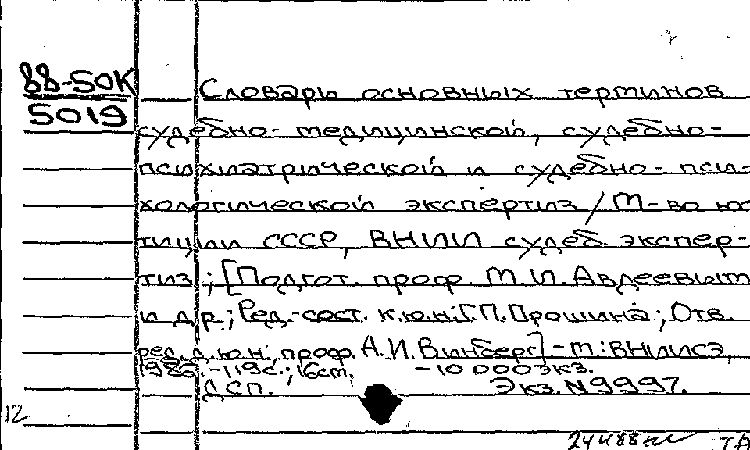 88-50К
5019
Словарь основных терминов
судебно-медицинской, судебно-
психиатрической и судебно-пси-
хологической экспертиз / М-во юс
тиции СССР, ВНИИ судеб экспер-
тиз; [Подгот. проф. М.И.Авдеевым
и др.; Ред.-сост. к.ю.н. Г.П.Прошина; Отв.
ред. д.ю.н., проф. А.И.Винберг] - М.: ВНИИСЭ,
-119с.; 16ст. -10 000экз.
ДСП. Экз. №9997.
12